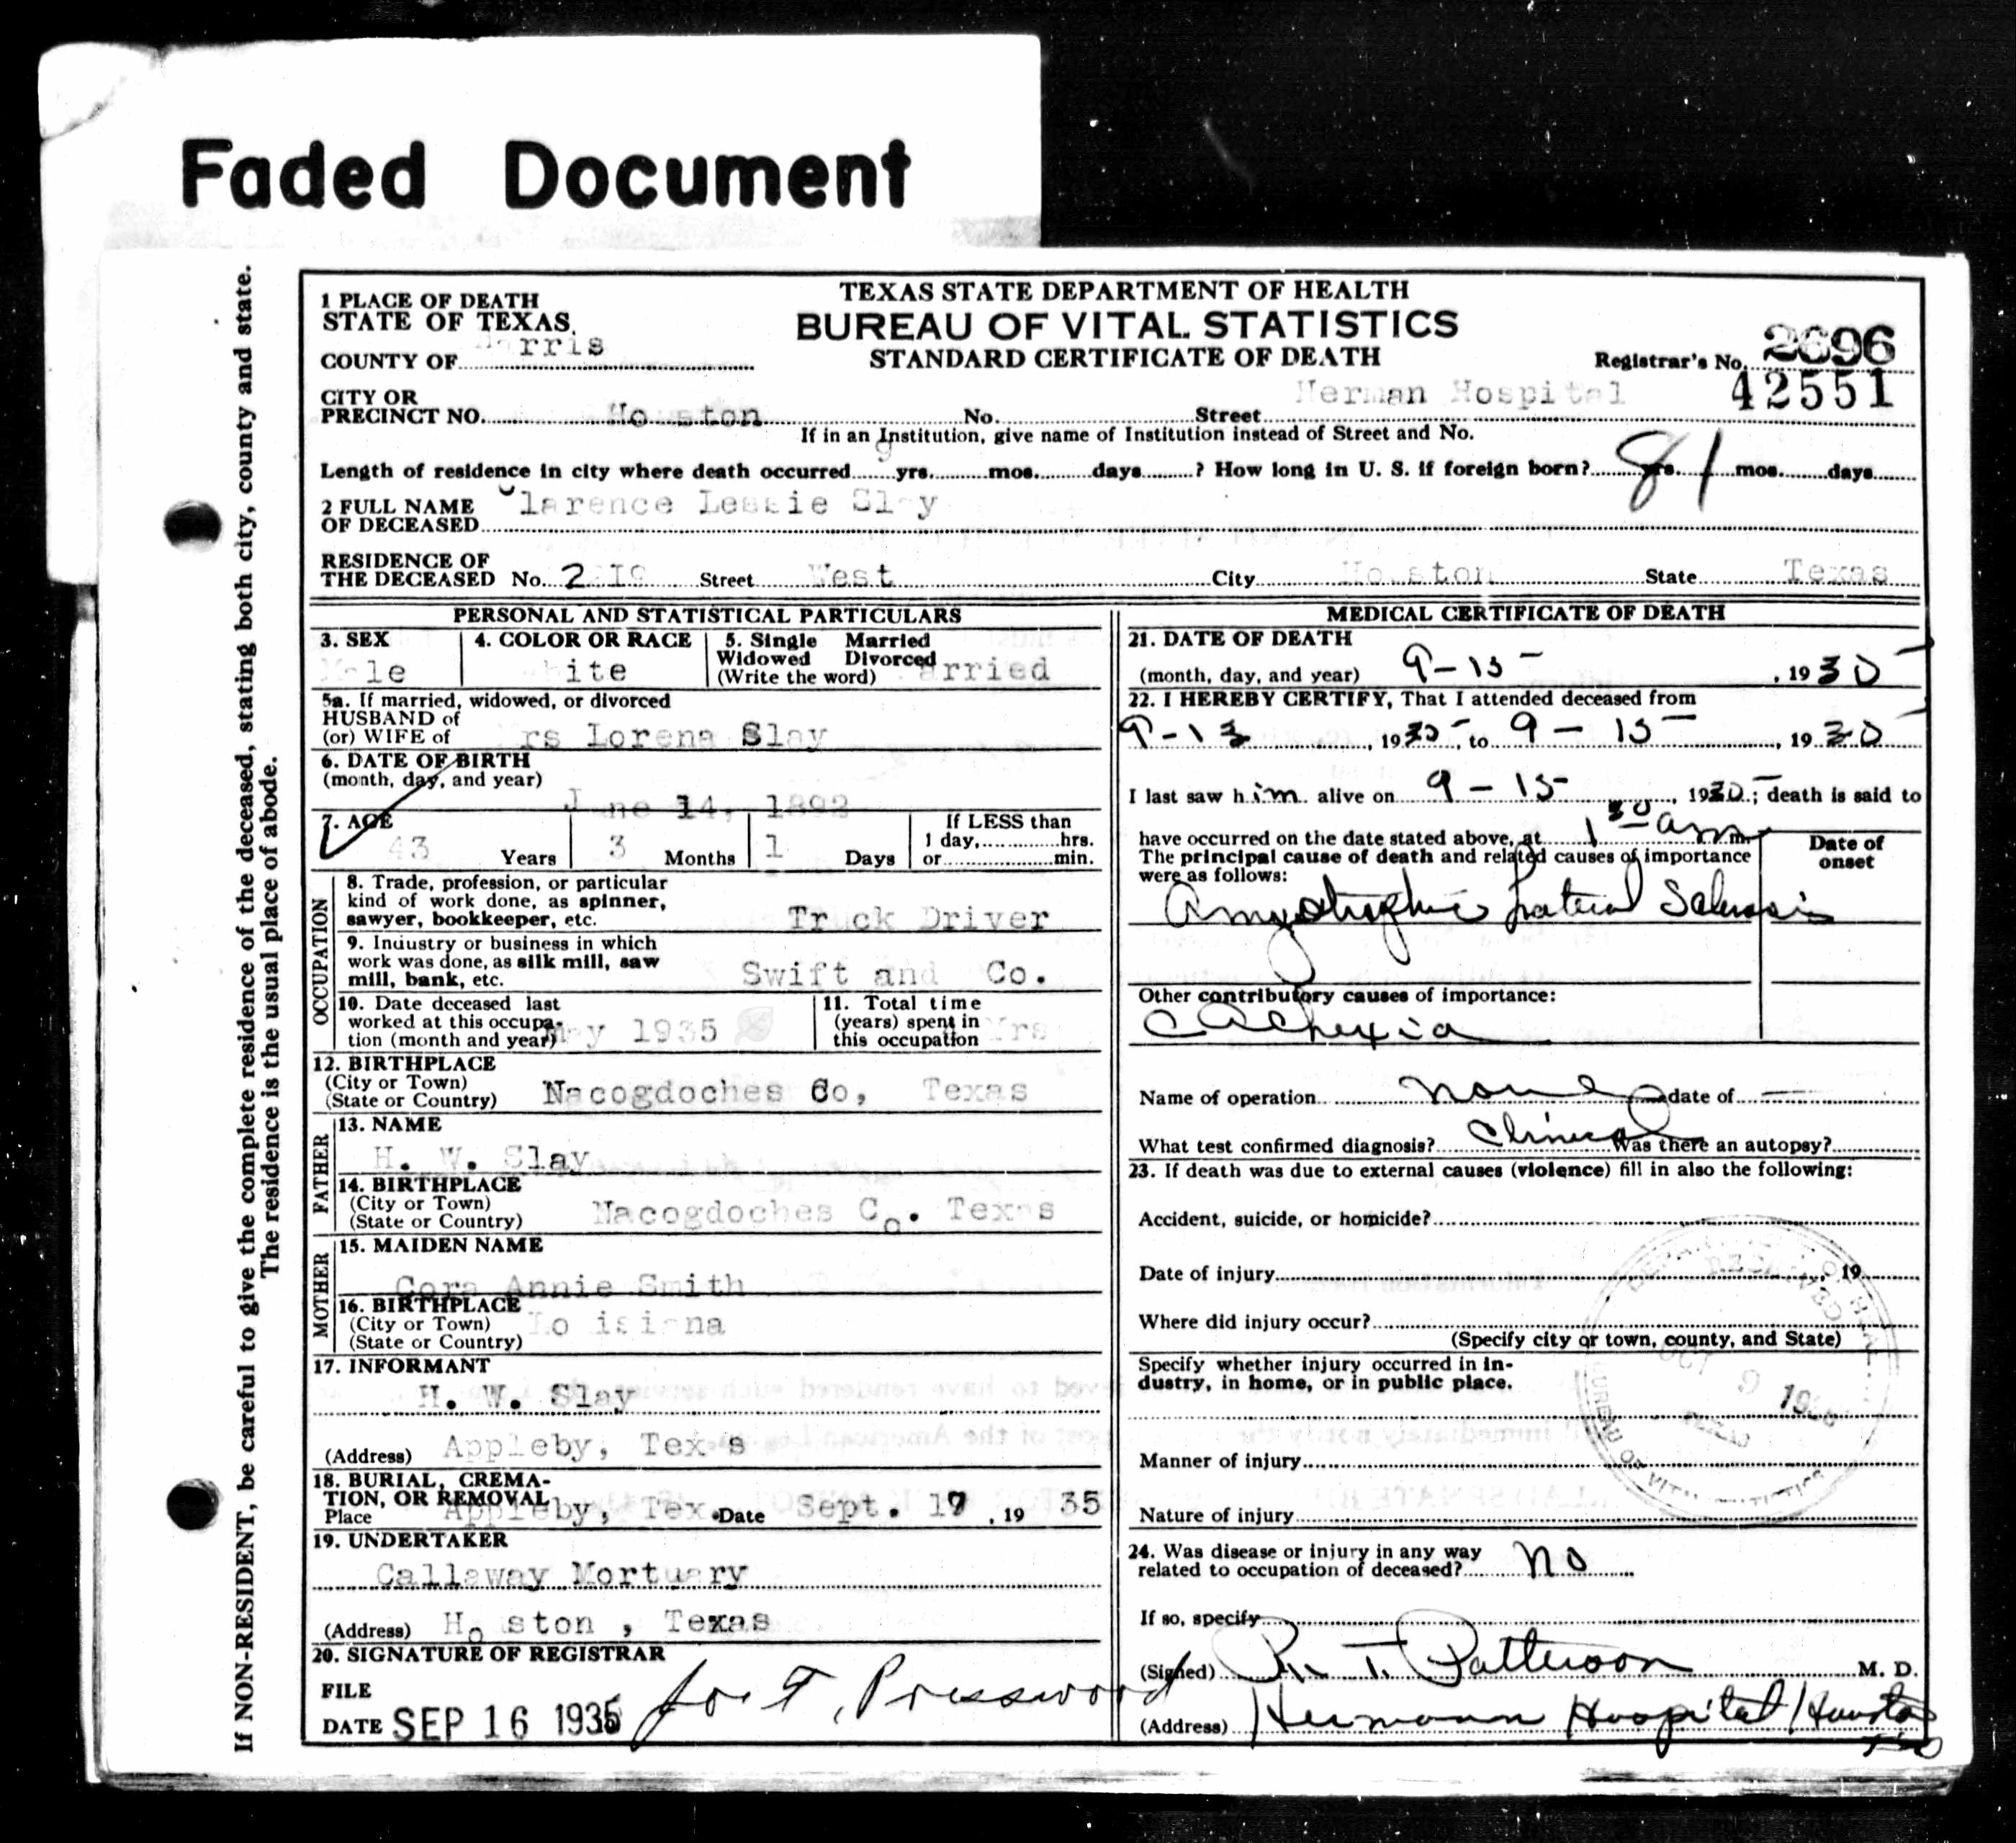 Faded Document
If NON-RESIDENT, be careful to give the complete residence of the deceased, stating both city, county and state.
The residence is the usual place of abode.
1 PLACE OF DEATH
STATE OF TEXAS.
COUNTY OF rris
TEXAS STATE DEPARTMENT OF HEALTH
BUREAU OF VITAL STATISTICS
STANDARD CERTIFICATE OF DEATH
Registrar's No. 2696
42551
CITY OR
PRECINCT NO. Ho ston No. Street Herman Hospital
If in an Institution, give name of Institution instead of Street and No.
Length of residence in city where death occurred 9 yrs. mos. days ? How long in U. S. if foreign born? yrs. mos. days
81
2 FULL NAME
OF DECEASED Clarence Leslie Sl y
RESIDENCE OF
THE DECEASED No. Street West City Ho ston State Texas
PERSONAL AND STATISTICAL PARTICULARS
3. SEX
M le
4. COLOR OR RACE
ite
5. Single Married
Widowed Divorced
(Write the word) arried
5a. If married, widowed, or divorced
HUSBAND of
(or) WIFE of rs Lorena Slay
6. DATE OF BIRTH
(month, day, and year)
J ne 14, 1892
7. AGE
43 Years 3 Months 1 Days
If LESS than
1 day, hrs.
or min.
OCCUPATION
8. Trade, profession, or particular
kind of work done, as spinner,
sawyer, bookkeeper, etc. Truck Driver
9. Industry or business in which
work was done, as silk mill, saw
mill, bank, etc. Swift and Co.
10. Date deceased last
worked at this occupa-
tion (month and year) May 1935
11. Total time
(years) spent in
this occupation Yrs
12. BIRTHPLACE
(City or Town)
(State or Country) Nacogdoches Co, Texas
FATHER
13. NAME
H. W. Slay
14. BIRTHPLACE
(City or Town)
(State or Country) Nacogdoches Co. Tex s
MOTHER
15. MAIDEN NAME
Cora Annie Smith
16. BIRTHPLACE
(City or Town) Lo isi na
(State or Country)
17. INFORMANT
H. W. Slay
(Address) Appleby, Tex s
18. BURIAL, CREMA-
TION, OR REMOVAL
Place Appleby, Tex. Date Sept. 17, 19 35
19. UNDERTAKER
Callaway Mortuary
(Address) Ho ston , Texas
20. SIGNATURE OF REGISTRAR
FILE
DATE SEP 16 1935 Joe T. Presswood
MEDICAL CERTIFICATE OF DEATH
21. DATE OF DEATH
(month, day, and year) 9-15- , 1935
22. I HEREBY CERTIFY, That I attended deceased from
9-13 , 1935, to 9-15 , 1935
I last saw him alive on 9-15 , 1935; death is said to
have occurred on the date stated above, at 1 30 am m.
The principal cause of death and related causes of importance
were as follows:
Date of
onset
Amyotrophic Lateral Sclerosis
Other contributory causes of importance:
Cachexia
Name of operation none date of —
What test confirmed diagnosis? Clinical Was there an autopsy?
23. If death was due to external causes (violence) fill in also the following:
Accident, suicide, or homicide?
Date of injury , 19
Where did injury occur?
(Specify city or town, county, and State)
Specify whether injury occurred in in-
dustry, in home, or in public place.
Manner of injury
Nature of injury
24. Was disease or injury in any way
related to occupation of deceased? no
If so, specify
(Signed) R. T. Patterson M. D.
(Address) Hermann Hospital Houston